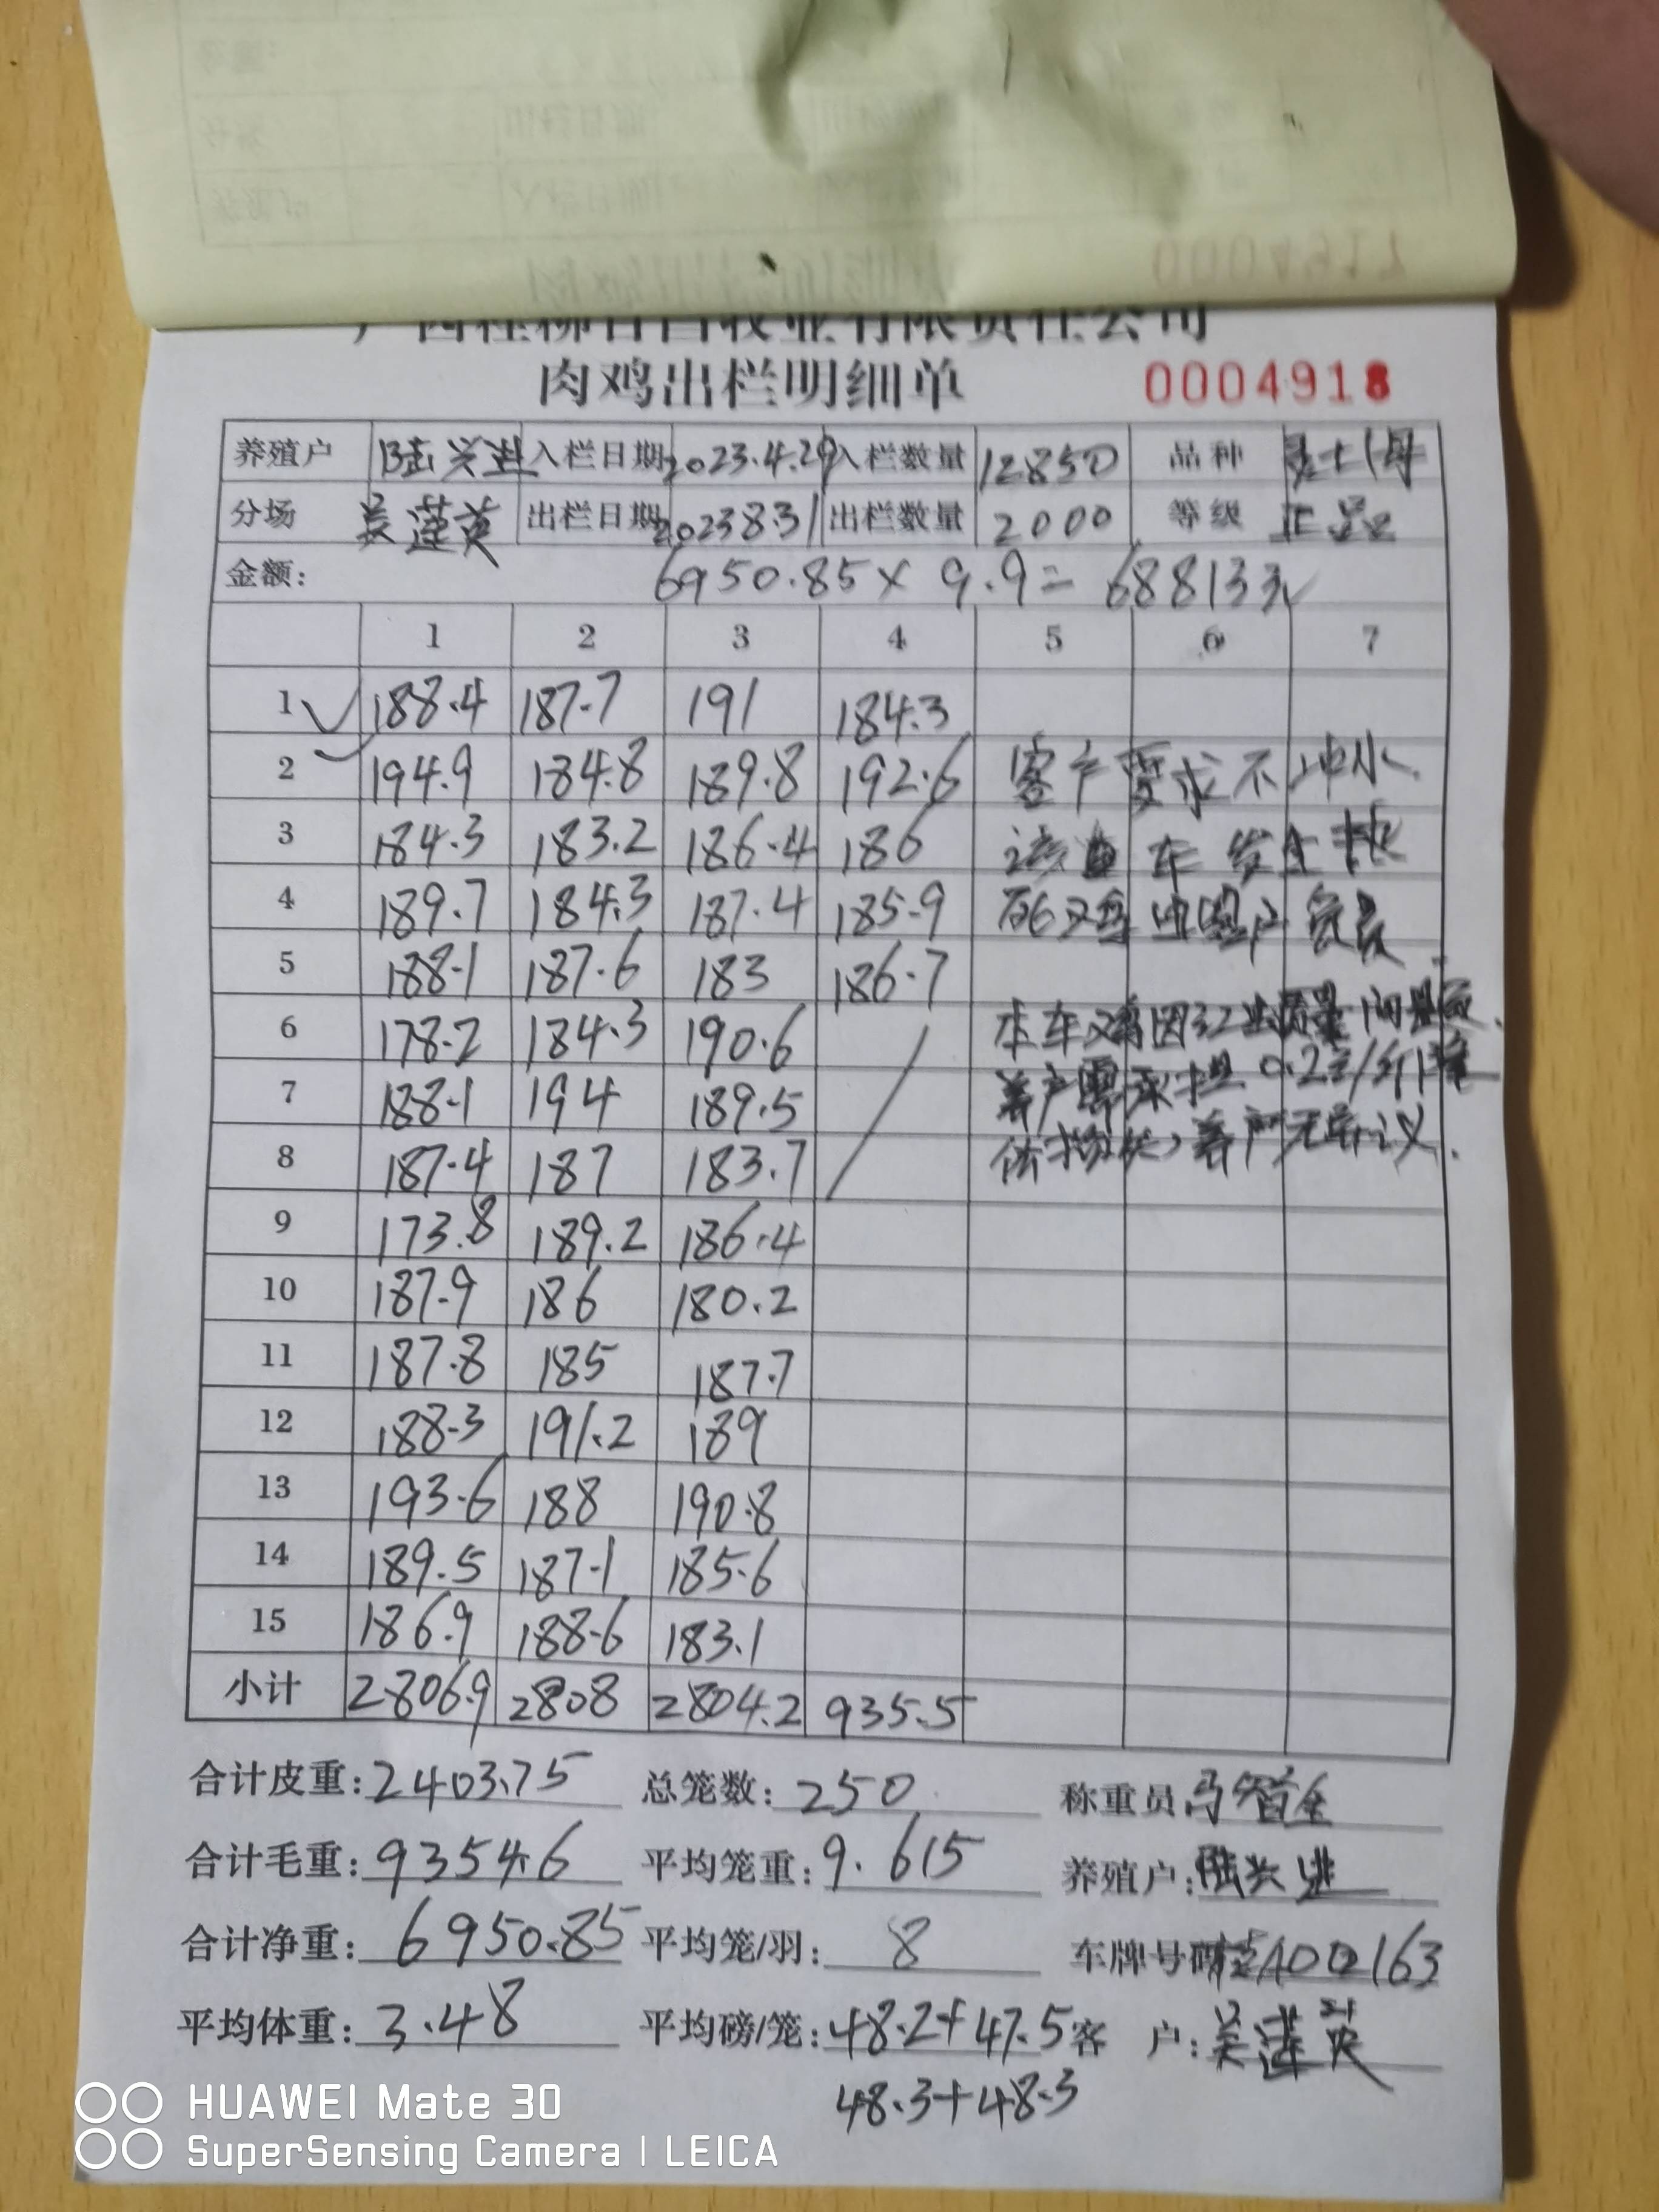 00004917
肉鸡出栏明细单 0004918
养殖户 陆兴进 入栏日期 2023.4.29 入栏数量 12850 品种
分场 吴莲英 出栏日期 2023 8.31 出栏数量 2000 等级 正品
金额: 6950.85 × 9.9 = 68813元
1 2 3 4 5 6 7
1 188.4 187.7 191 184.3
2 194.9 184.8 189.8 192.6 客户要求不冲水
3 184.3 183.2 186.4 186 该车发生热
4 189.7 184.3 187.4 185.9 死鸡由客户负责
5 188.1 187.6 183 186.7
6 178.2 184.3 190.6 本车鸡因 质量问题
7 188.1 194 189.5 养户需承担0.2元/斤降
8 187.4 187 183.7 价损失,养户无异议.
9 173.8 189.2 186.4
10 187.9 186 180.2
11 187.8 185 187.7
12 188.3 191.2 189
13 193.6 188 190.8
14 189.5 187.1 185.6
15 186.9 188.6 183.1
小计 2806.9 2808 2804.2 935.5
合计皮重: 2403.75 总笼数: 250 称重员
合计毛重: 9354.6 平均笼重: 9.615 养殖户: 陆兴进
合计净重: 6950.85 平均笼/羽: 8 车牌号码
平均体重: 3.48 平均磅/笼: 48.2+47.5 客 户: 吴莲英
48.3+48.3
HUAWEI Mate 30
SuperSensing Camera | LEICA